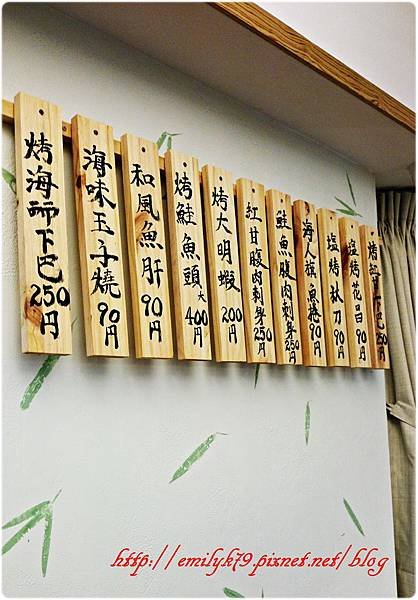 烤海師下巴 250円
海味玉子燒 90円
和風魚肝 90円
烤鮭魚頭 大 400円
烤大明蝦 200円
紅甘腹肉刺身 250円
鮭魚腹肉刺身 250円
海人旗魚捲 90円
塩烤秋刀 90円
塩烤花昌 90円
烤紅下巴 250円
http://emilyk79.pixnet.net/blog